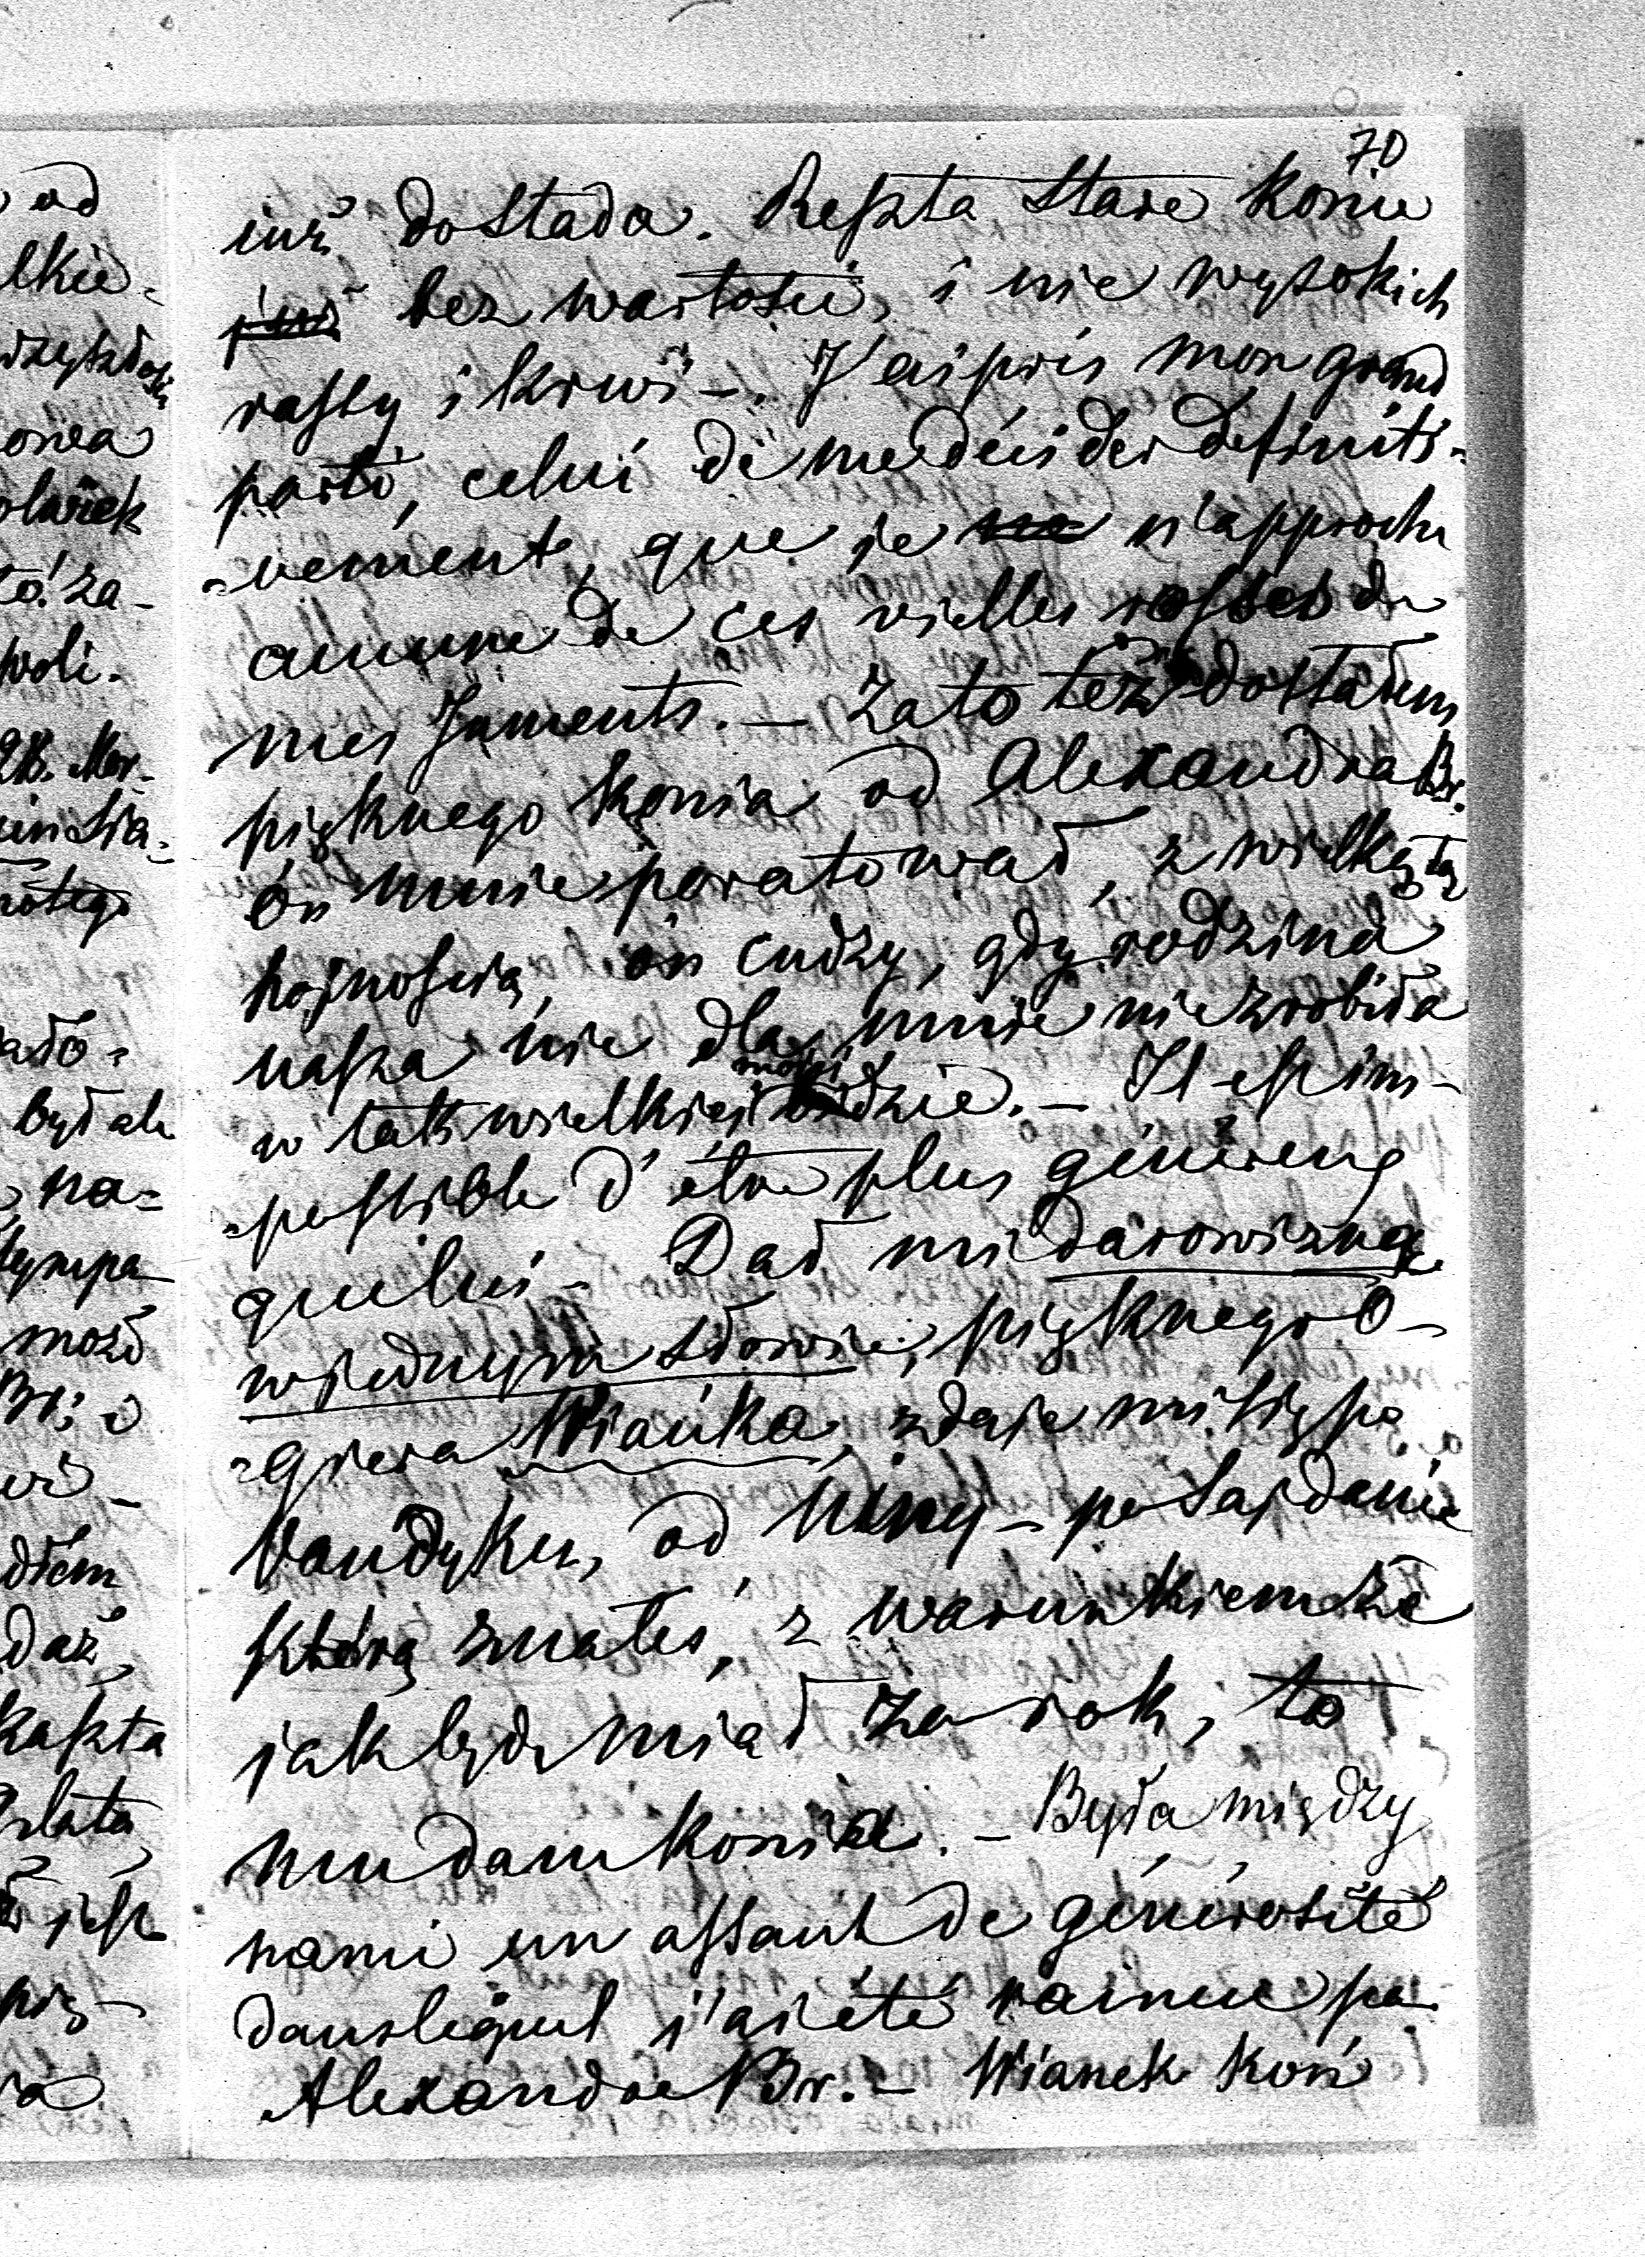 70
już do Stada. Reszta stare konie
już bez wartości, i nie wysokich
rassy i krwi –. J'ai pris mon grand
parti, celui de me décider définiti-
-vement, que je ne n'approche
aucune de ces vielles rosses de
mes juments. – Za to też dostałem
pięknego konia od Alexandra Br.
on mnie poratował, z wielką tą
hojnością, on cudzy, gdy rodzina
nasza nic dla mnie nie zrobiła
w tak wielkiej mojej biedzie. – Il est im-
-possible d'être plus généreux
que lui – Dał mi darowizną
w jednym słowie, pięknego O-
-giera Wianka, zdaje mi się po
Vandyku, od Niny – po Sajdanie
którą znałeś, z warunkiem że
jak będę miał za rok, to
mu dam konia. – Była między
nami un assaut de générosité
dans lequel j'ai été vaincu pa.
Alexandre Br. – Wianek koń